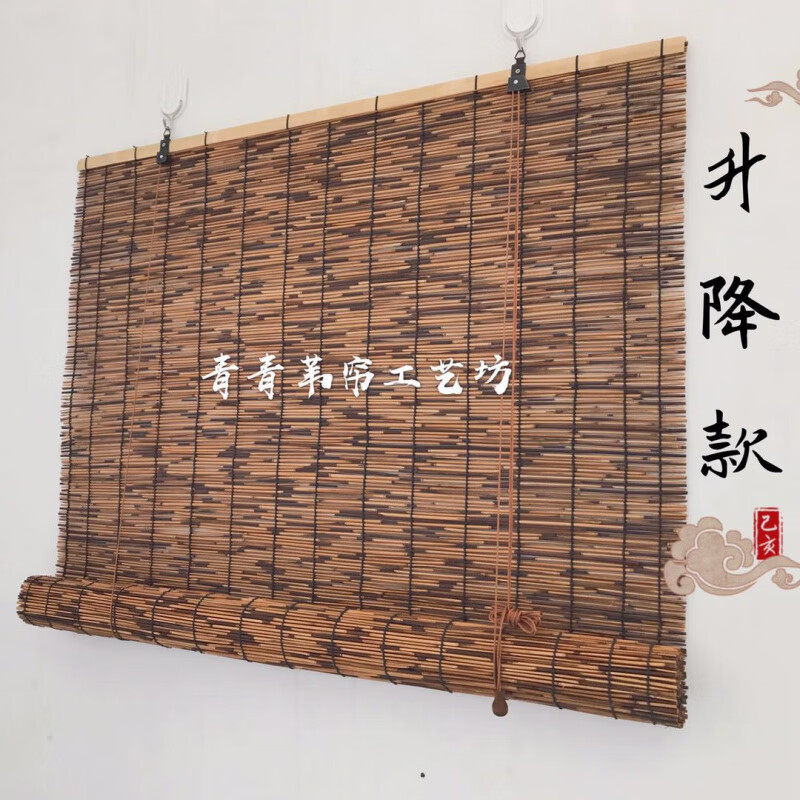 升降款
青青苇帘工艺坊
己亥